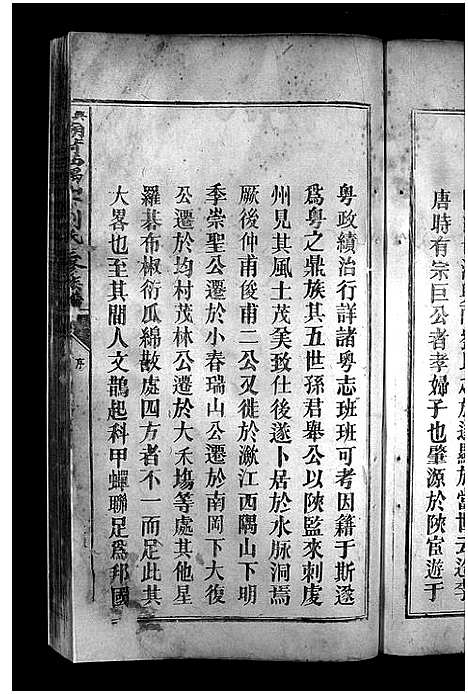 唐時有宗巨公者孝婦子也肇源於陝宦遊于
粤政績治行詳諸粤志班班可考因籍于斯遂
爲粤之鼎族其五世孫君舉公以陝監來刺虔
州見其風土茂美致仕後遂卜居於水脉洞焉
厥後仲甫俊甫二公又徙於瀲江西隅山下明
季崇聖公遷於小春瑞山公遷於南岡下大復
公遷於均村茂林公遷於大禾塲等處其他星
羅碁布椒衍瓜綿散處四方者不一而足此其
大畧也至其間人文鵲起科甲蟬聯足爲邦國
序